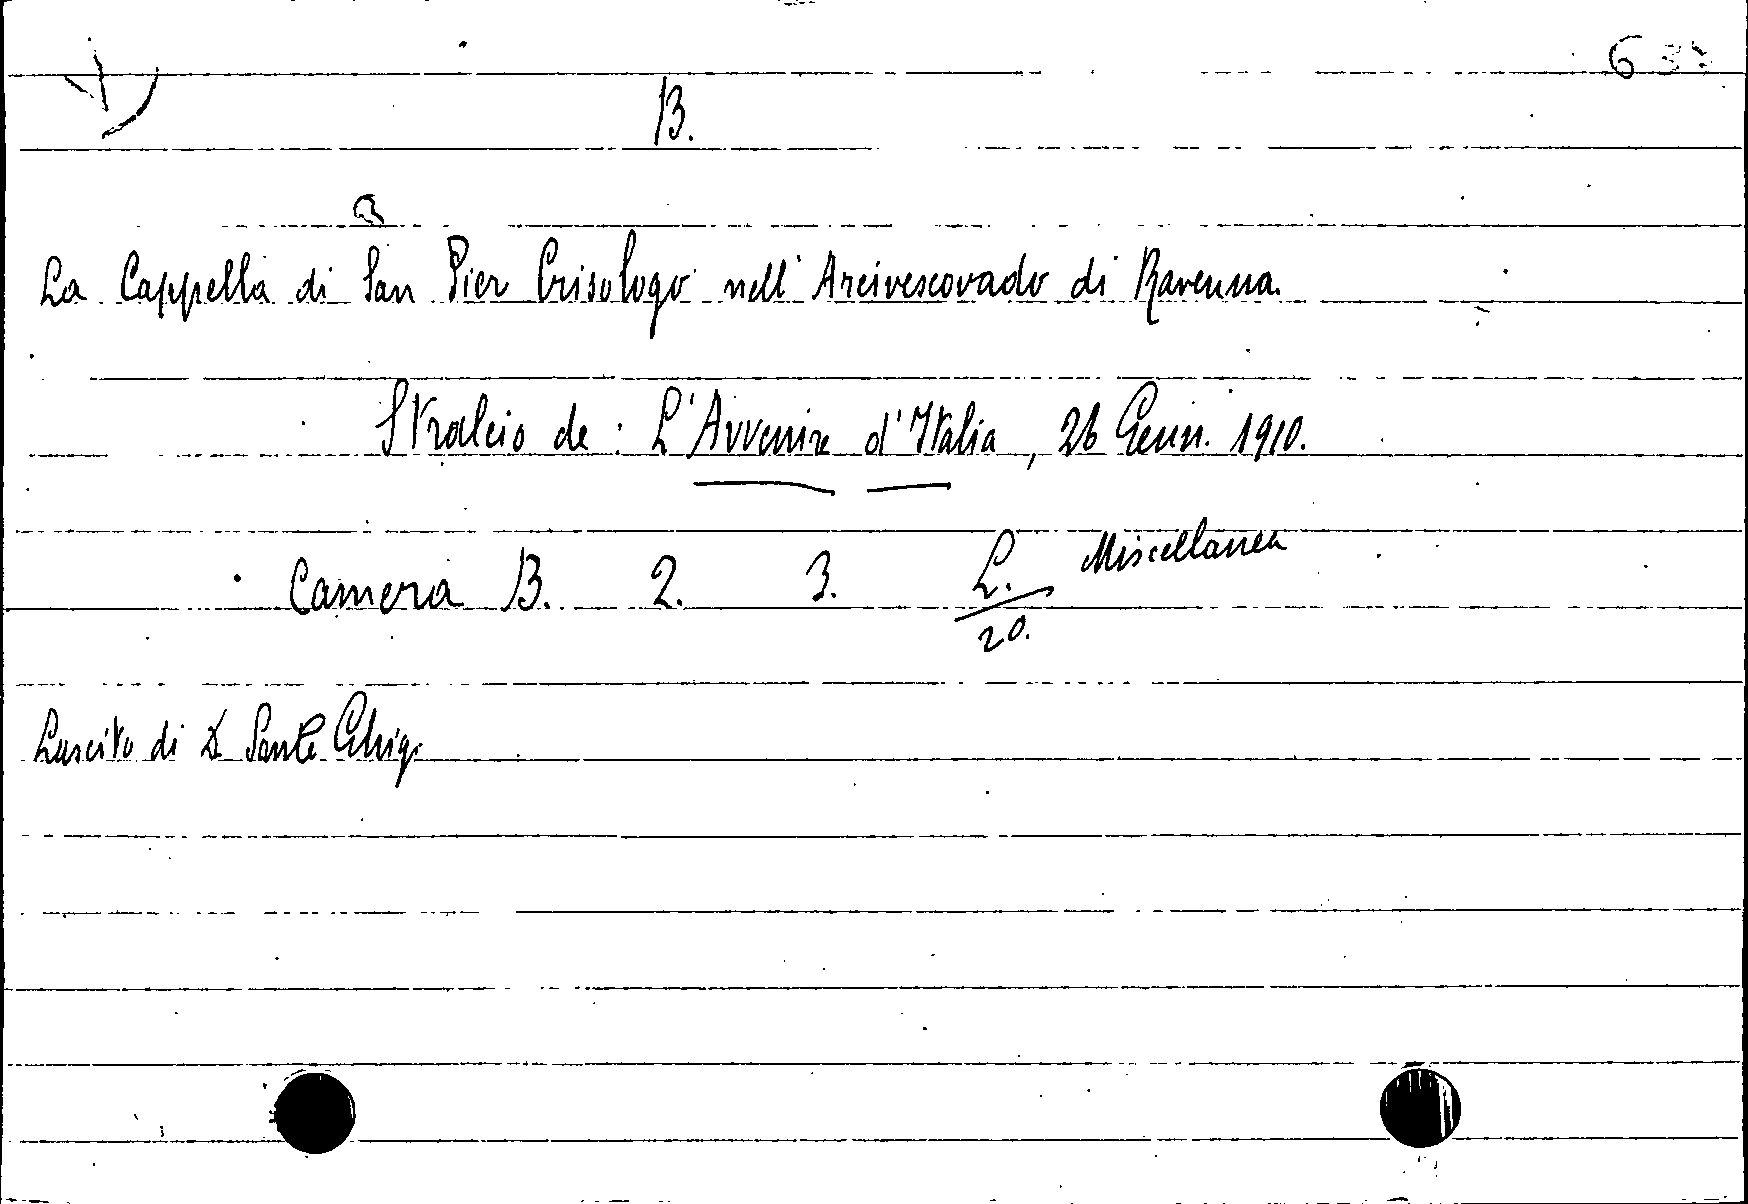 B.
La Cappella di San Pier Crisologo nell' Arcivescovado di Ravenna.
Stralcio de: L'Avvenire d'Italia, 26 Genn. 1910.
Camera B. 2. 3. L./20. Miscellanea
Lascito di D. Sante Ghigi